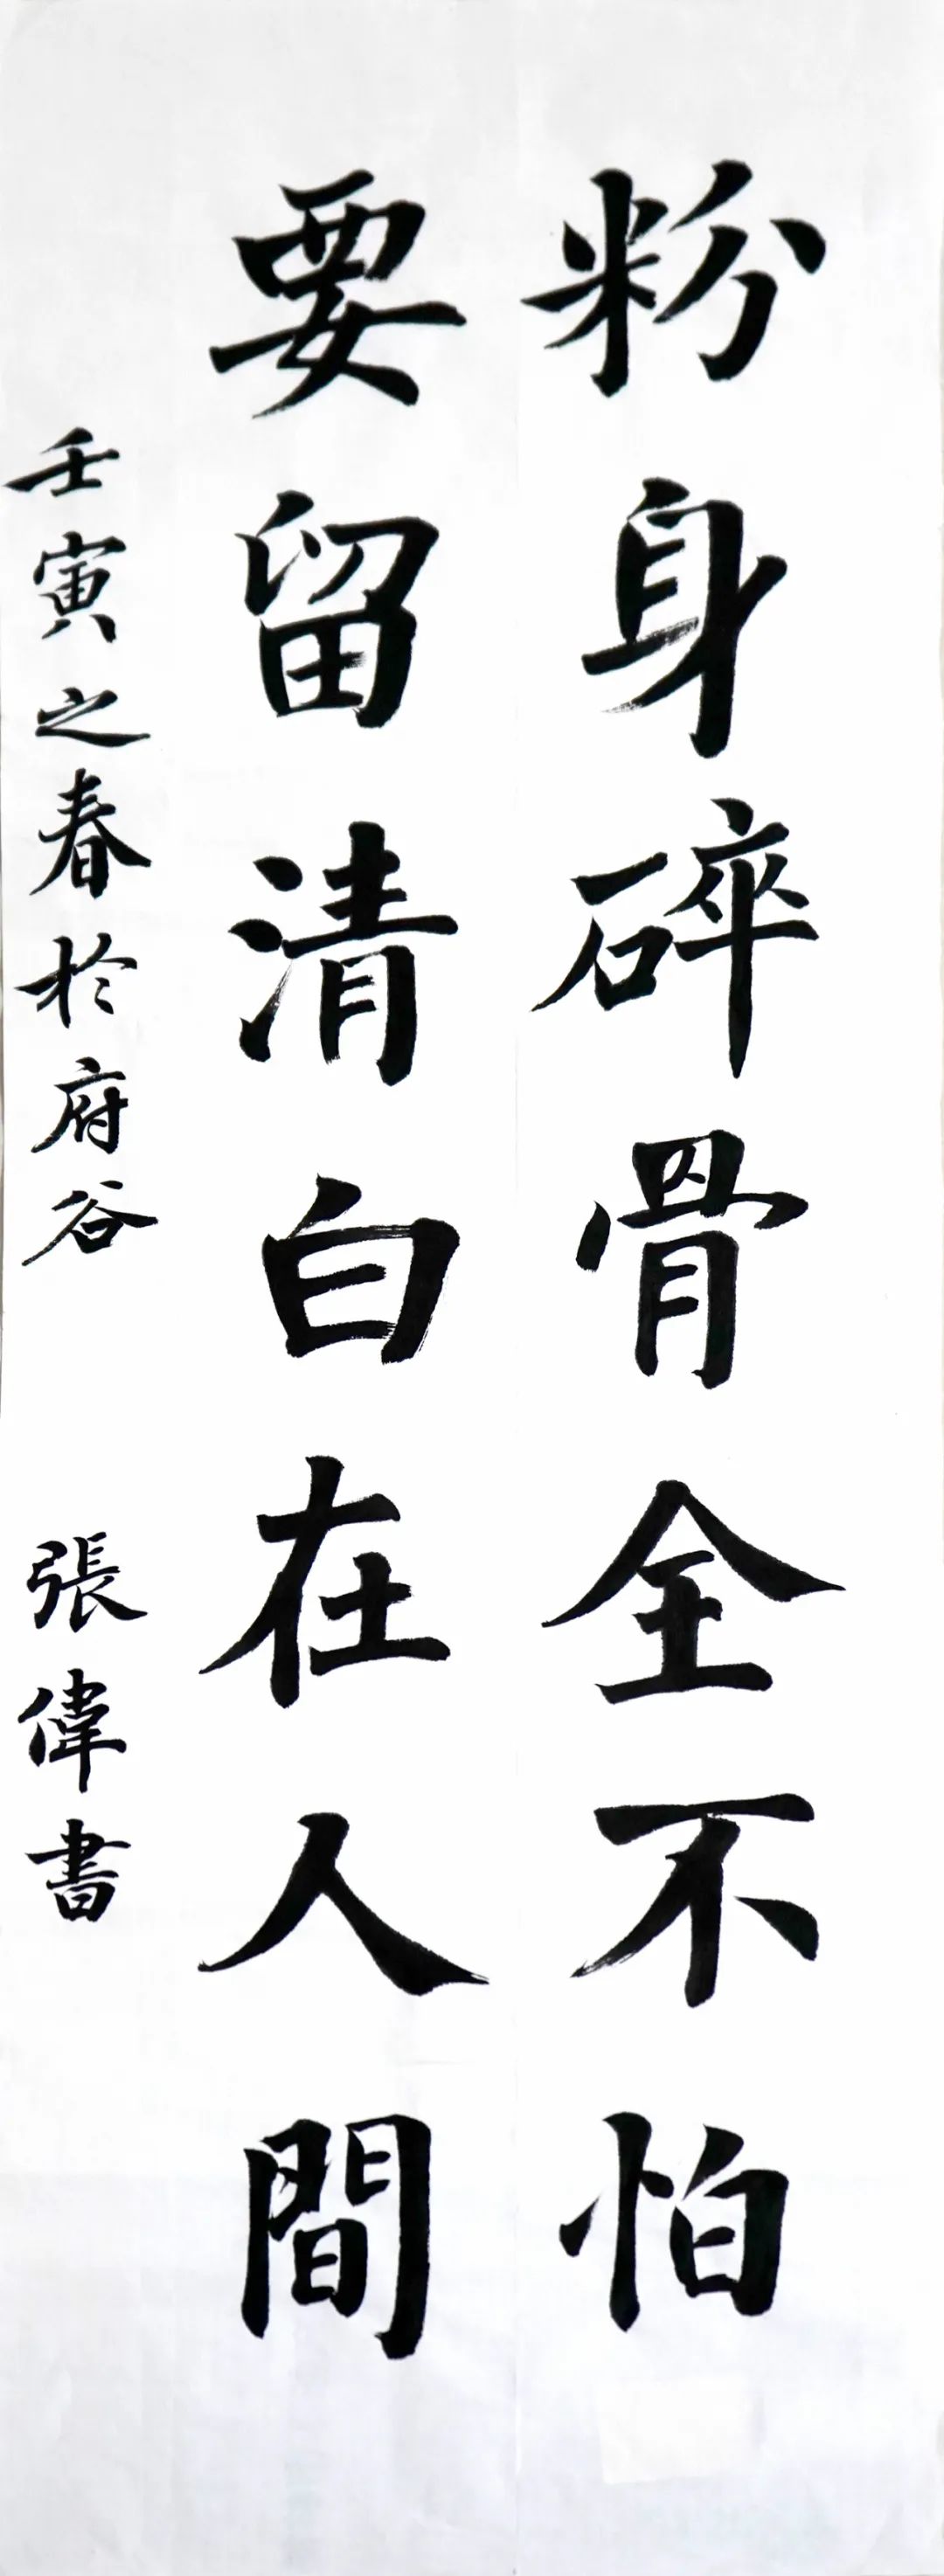 粉身碎骨全不怕
要留清白在人間
壬寅之春於府谷 張偉書